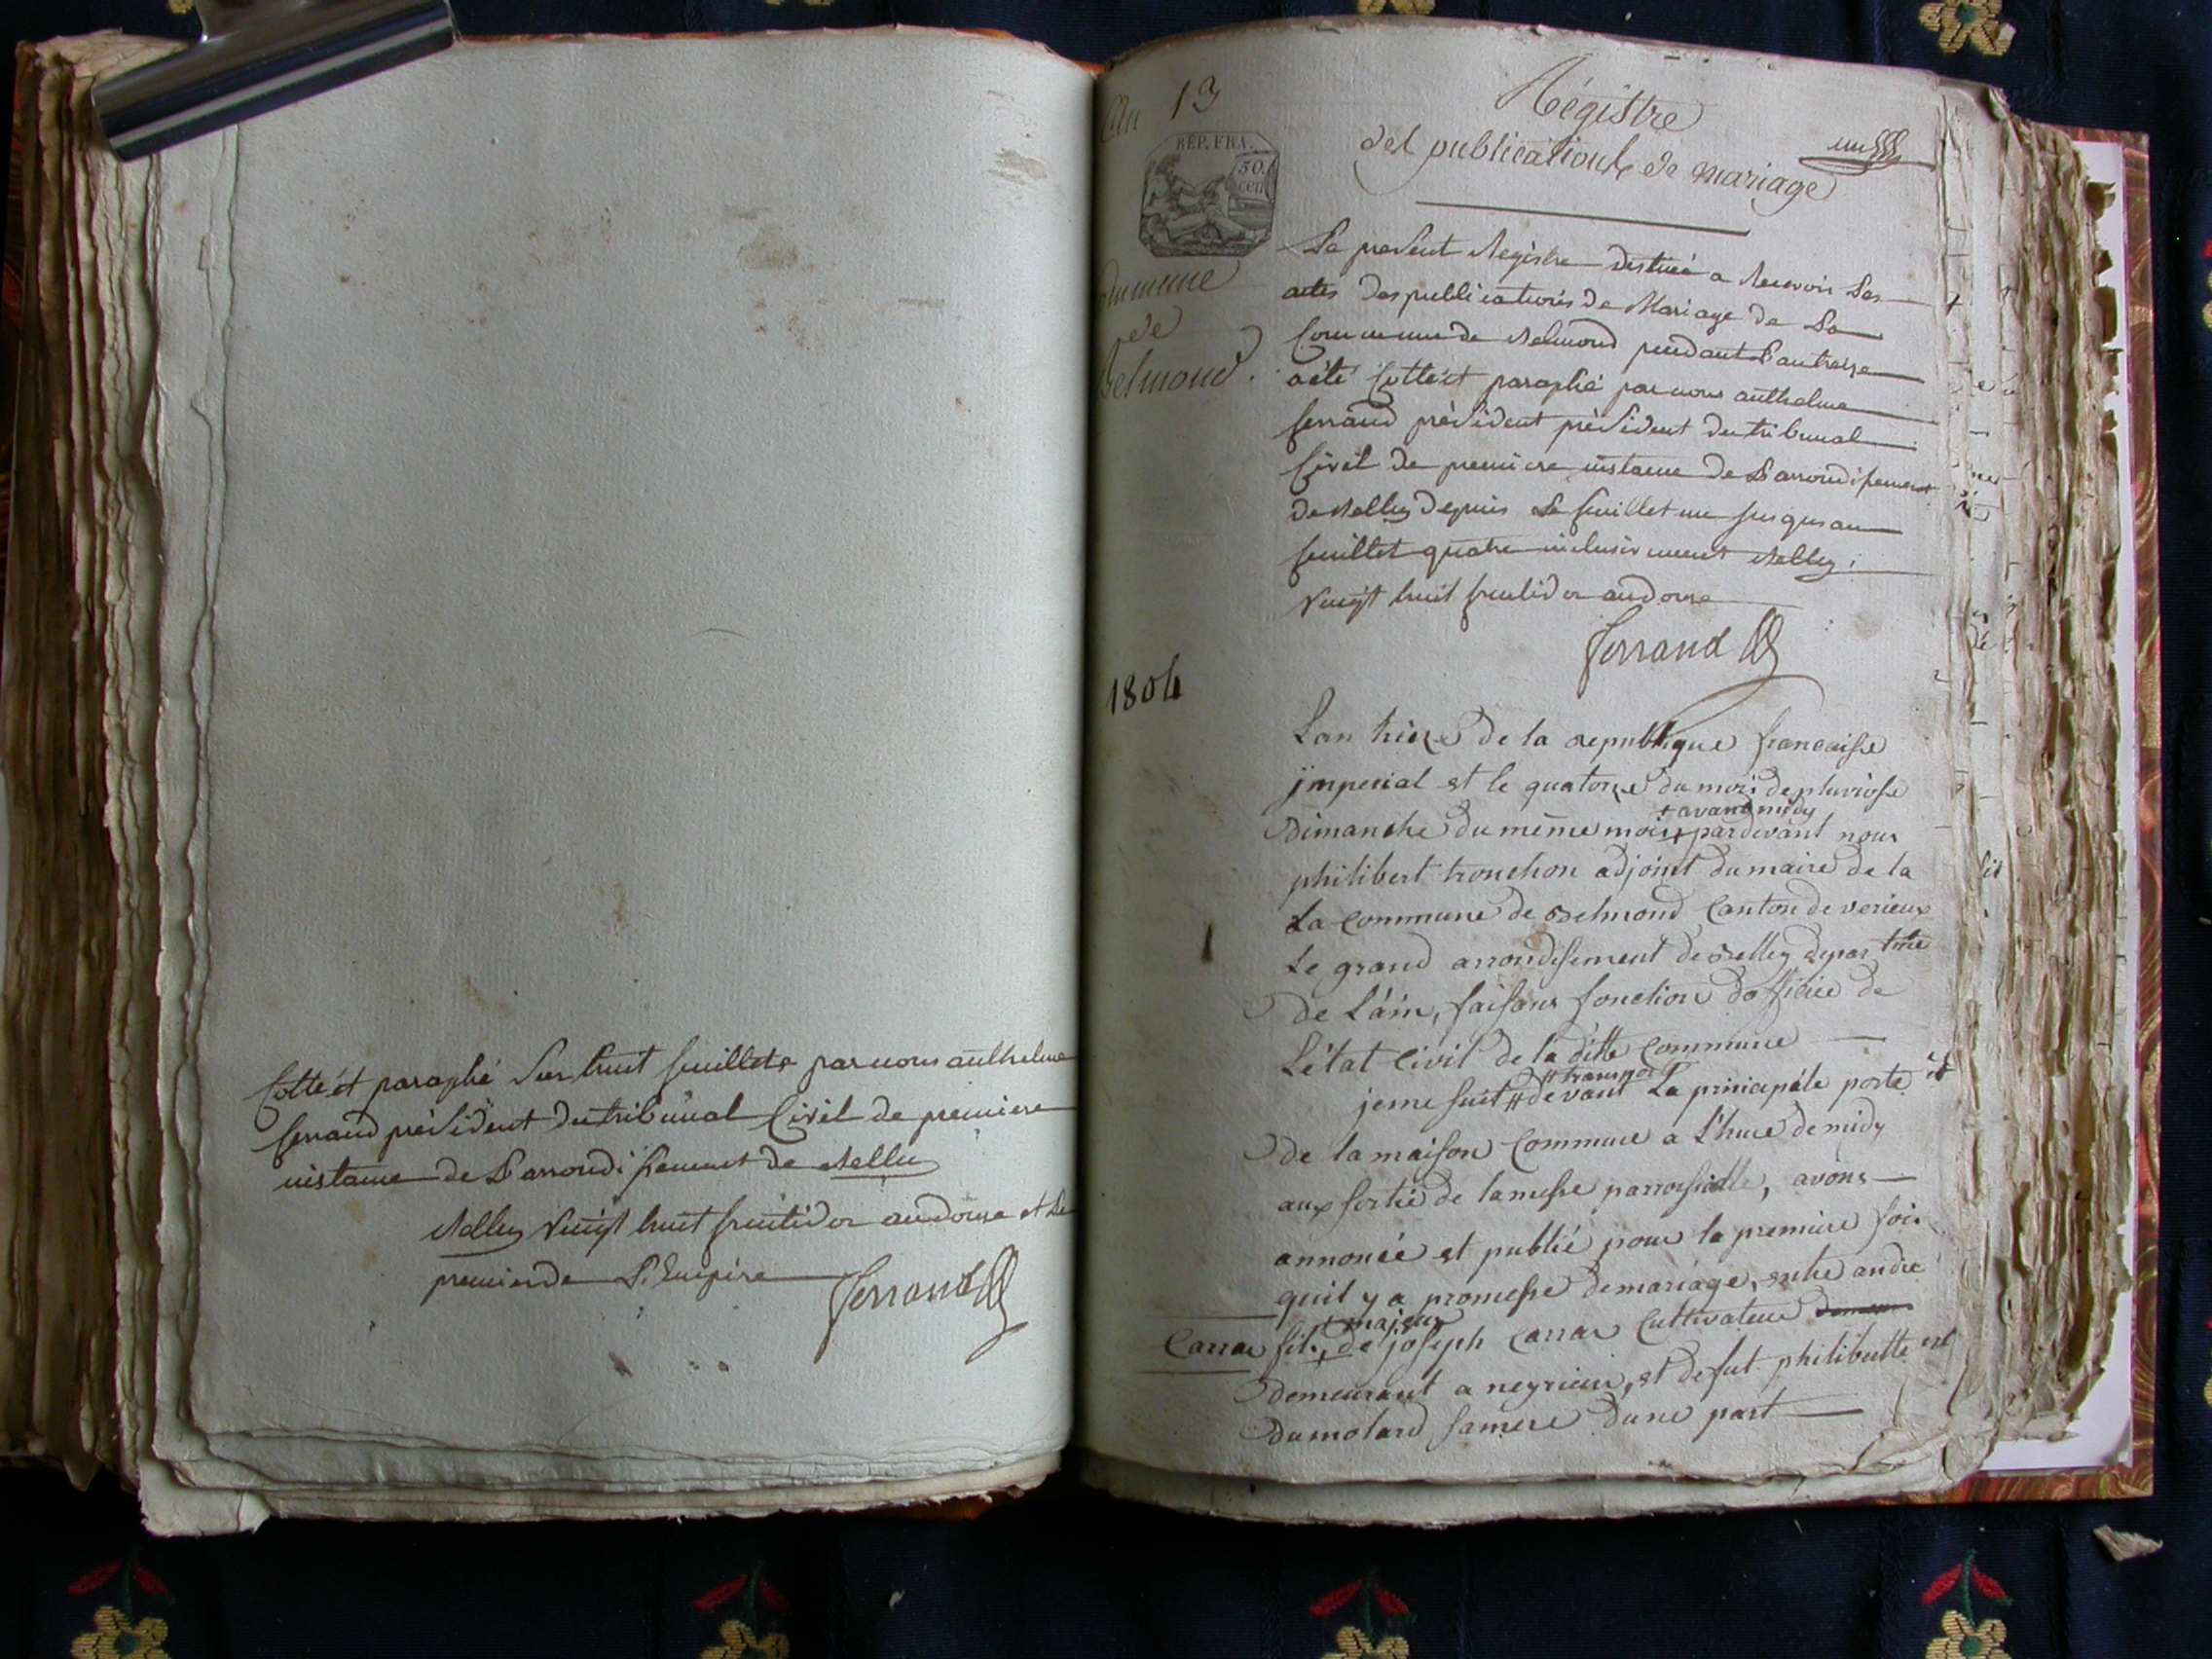 Cotté et paraphé Sur huit feuillets par nous anthelme
ferrand président du tribunal Civil de premiere
instance de L'arrondissement de Belley
Belley Vuigt huit fructidor an douze et Le
premier de L'Empire
ferrand
An 13
REP. FRA.
50.
cen
Commune
de
Belmond.
Régistre
des publications de mariage
un
Le present Registre destiné a Recevoir Les
actes des publications de Mariage de La
Commune de Belmond pendant L'an treize
a été Cotté et paraphé par nous anthelme
ferrand président président du tribunal
Civil de premiere instance de L'arrondissement
de Belley depuis Le feuillet un jusques au
feuillet quatre inclusivement Belley
Vuigt huit fructidor an douze
ferrand
1804
L'an treize de la republique francaisse
jmperial et le quatorze du mois de pluviosse
+ avant midy
dimanche du même mois + pardevant nous
philibert tronchon adjoint du maire de la
La commune de Belmond Canton de verieux
Le grand arrondisement de Belley depar tme
1
de L'ain, faisans fonction dofficié de
L'état Civil de la ditte commune
# transporté
je me suit # devant La principale porte et
de la maison Commune a L'hure de midy
aux sortié de la messe parroissialle, avons
annoncé et publié pour la premiere fois
quil y a promesse de mariage, entre andré
+ majeur
Carrar fils + de joseph Carrar Cultivateur
demeurant a neyrieu, et de fut philibertte
dumolard sa mere dune part